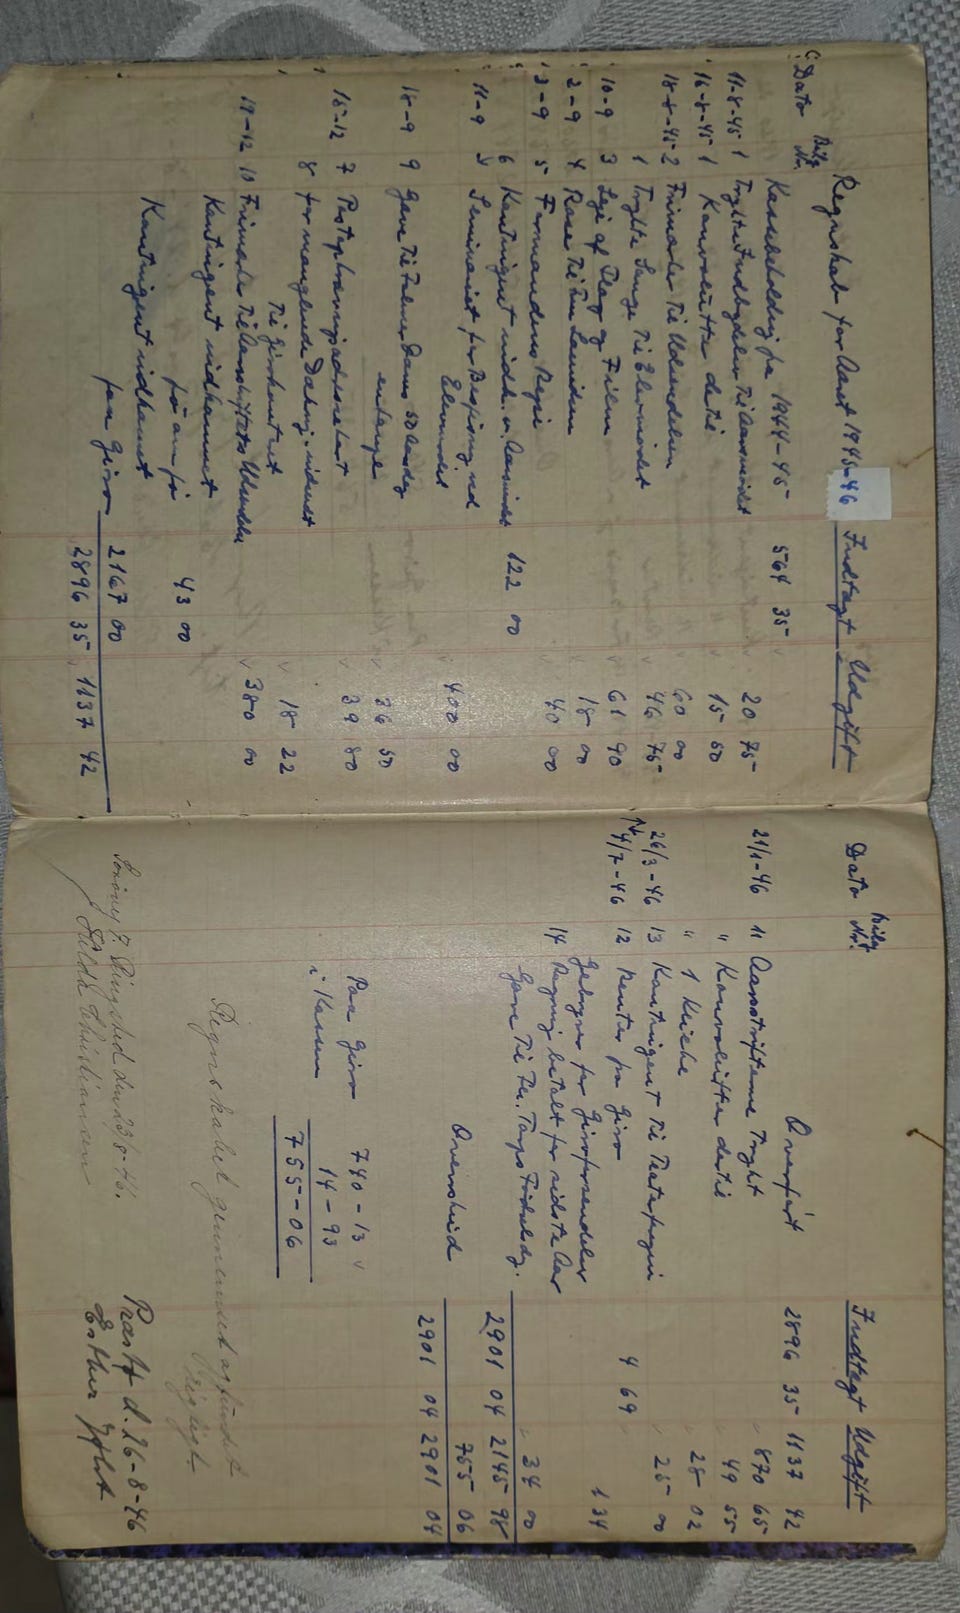 Regnskab for Aaret 1945-46 Indtægt Udgift
Dato Bilag Nr.
Kassebeholdning fra 1944-45 564 35
11-8-45 1 Trykte Indbydelser til Aarsmødet 20 75
16-8-45 1 Konvolutter dertil 15 50
18-8-45 2 Frimærker til Udsendelsen 60 00
1 Trykte Sange til Elevmødet 46 75
10-9 3 Leje af Flag og 61 90
2-9 4 Rejse til 18 00
3-9 5 Formandens Rejse 40 00
6 Kontingent indb. v. Aarsmødet 122 00
11-9 Seminariet for Bespisning ved
Elevmødet 400 00
18-9 9 Gave til
36 50
15-12 7 39 80
8 for manglende Dækning, indsat
til Girokontoet 18 22
19-12 10 Frimærker til Aarsskriftets Udsendelse 380 00
Kontingent indkommet
43 00
Kontingent indkommet
paa Giro 2167 00
2896 35 1137 42
Dato Bilag Nr. Indtægt Udgift
Overført 2896 35 1137 42
21/1-46 11 Aarsskrifterne Trykt 870 65
" Konvolutter dertil 49 55
" 1 Kliche 28 02
26/3-46 13 Kontingent til 25 00
4/7-46 12 Renter fra Giro 4 69
Gebyrer for Giroforsendelser 1 34
14 Regning betalt for sidste Aar
Gave til 34 00
2901 04 2145 98
Overskud 755 06
2901 04 2901 04
Paa Giro 740-13
i Kassen 14-93
755-06
Regnskabet gennemset og fundet
rigtigt.
Ringsted den 23-8-46.
Hilda Christiansen
Præstø d. 26-8-46
Esther